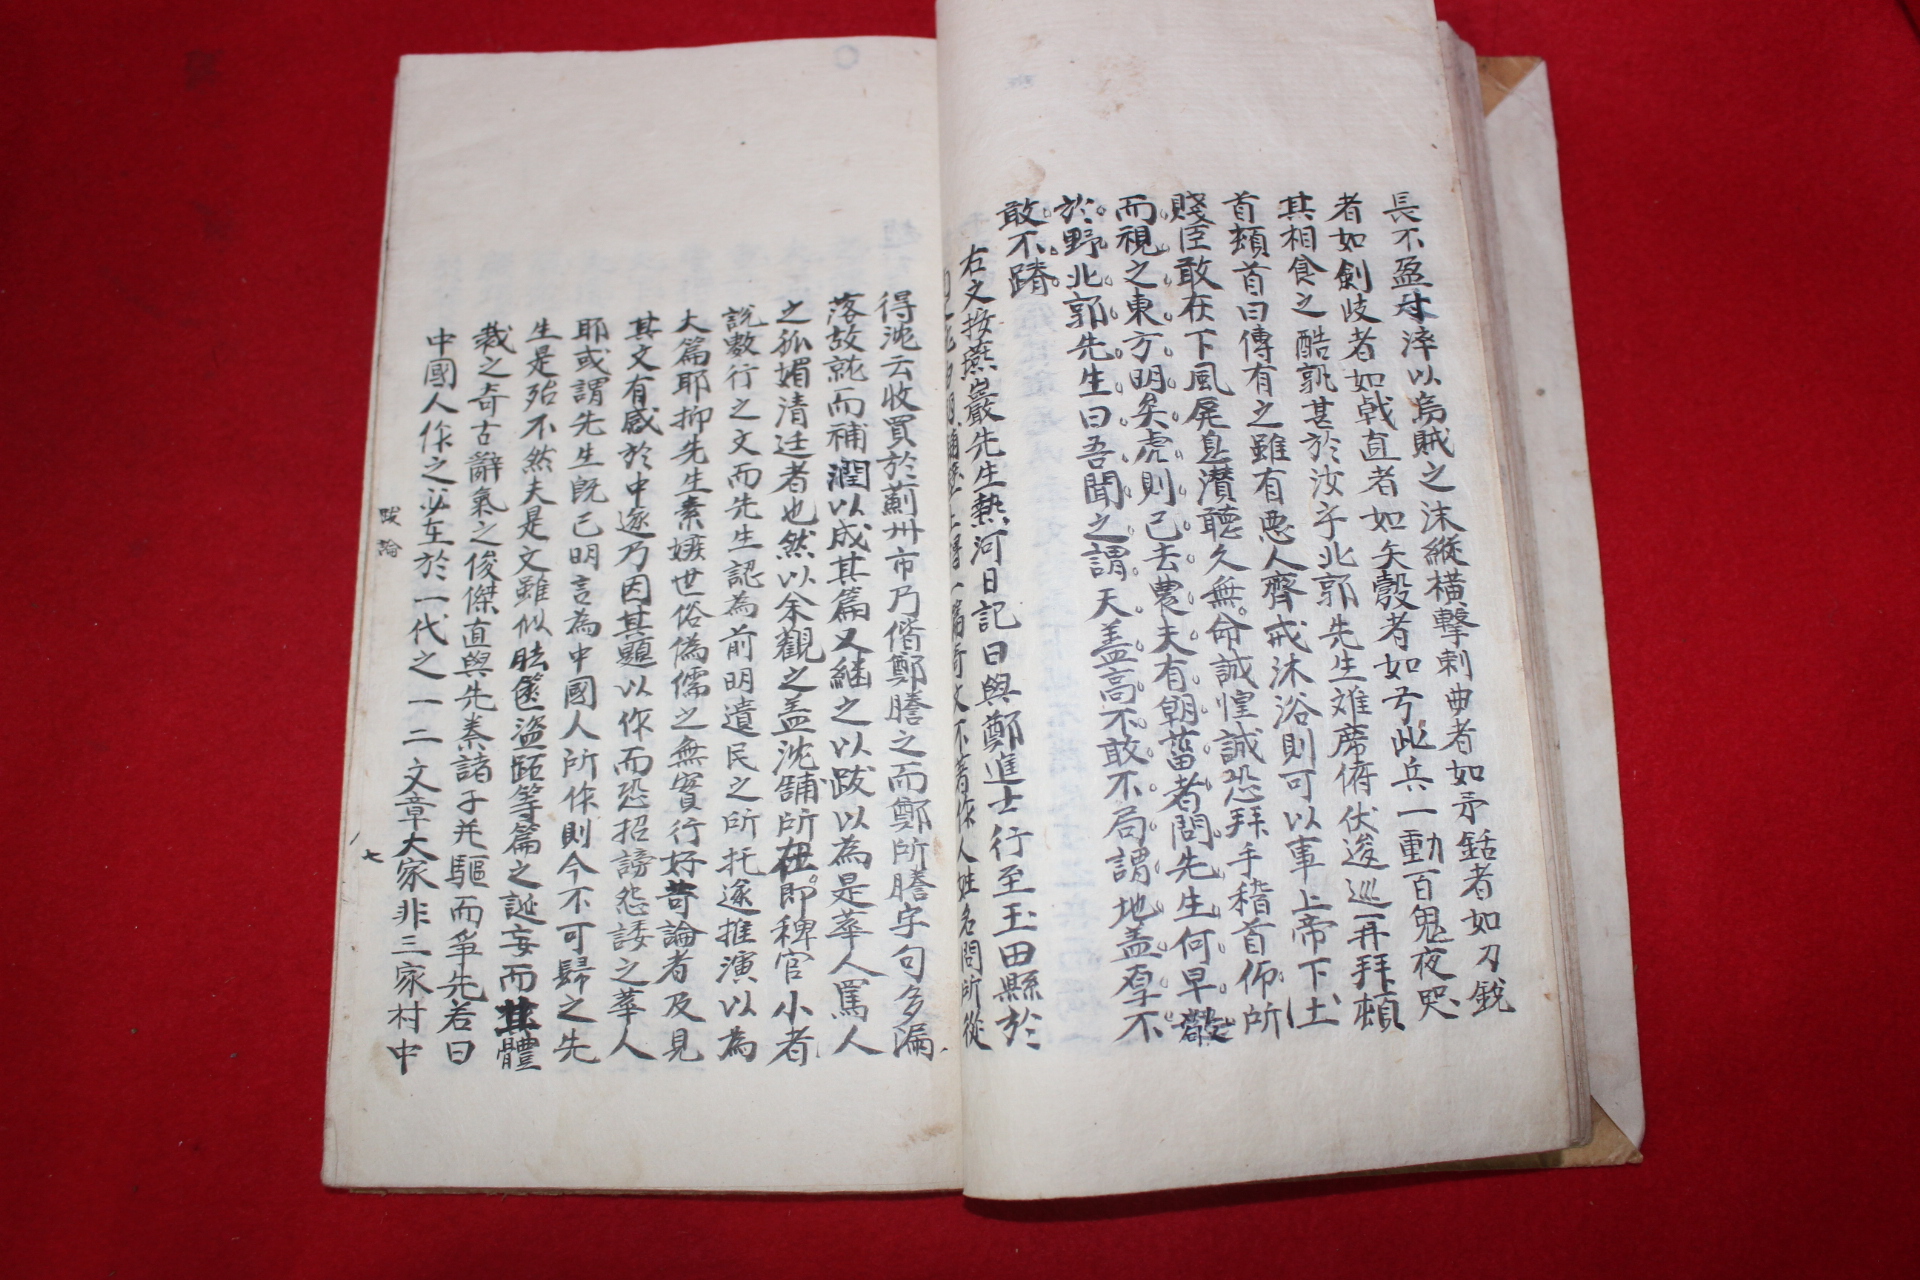 長不盈寸淬以烏賊之沫縱橫擊刺曲者如矛銛者如刀銳
者如劍歧者如戟直者如矢彀者如弓此兵一動百鬼夜哭
其相食之酷孰甚於汝乎北郭先生離席俯伏逡巡再拜頓
首頓首曰傳有之雖有惡人齊戒沐浴則可以事上帝下土
賤臣敢在下風屏息潛聽久無命誠惶誠恐拜手稽首仰
而視之東方明矣虎則已去農夫有朝菑者問先生何早敬
於野北郭先生曰吾聞之謂天盖高不敢不局謂地盖厚不
敢不蹐
右文按燕巖先生熱河日記曰與鄭進士行至玉田縣於
文不著作人姓名問所從
得沈云收買於薊州市乃偕鄭謄之而鄭所謄字句多漏
落故就而補潤以成其篇又繼之以跋以為是華人罵人
之孤媚清廷者也然以余觀之盖沈舖所在即稗官小者
說數行之文而先生認為前明遺民之所托遂推演以為
大篇耶抑先生素嫉世俗偽儒之無實行好苛論者及見
其文有感於中遂乃因其題以作而恐招謗怨諉之華人
耶或謂先生旣已明言為中國人所作則今不可歸之先
生是殆不然夫是文雖似胠篋盜跖等篇之誕妄而其體
裁之奇古辭氣之俊傑直與先秦諸子並驅而爭先若曰
中國人作之必在於一代之一二文章大家非三家村中
跋論
七